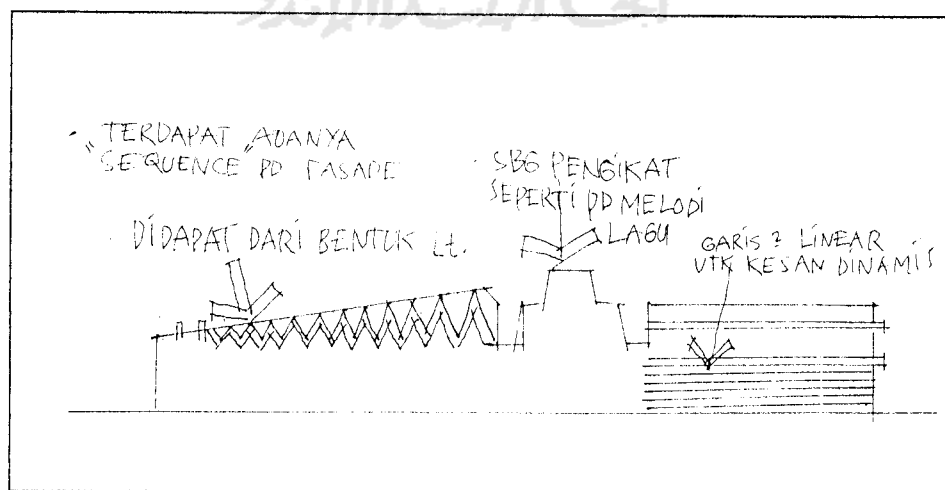 "TERDAPAT ADANYA
SEQUENCE" PD FASADE
DIDAPAT DARI BENTUK Lt.
SBG PENGIKAT
SEPERTI PD MELODI
LAGU
GARIS 2 LINEAR
UTK KESAN DINAMIS